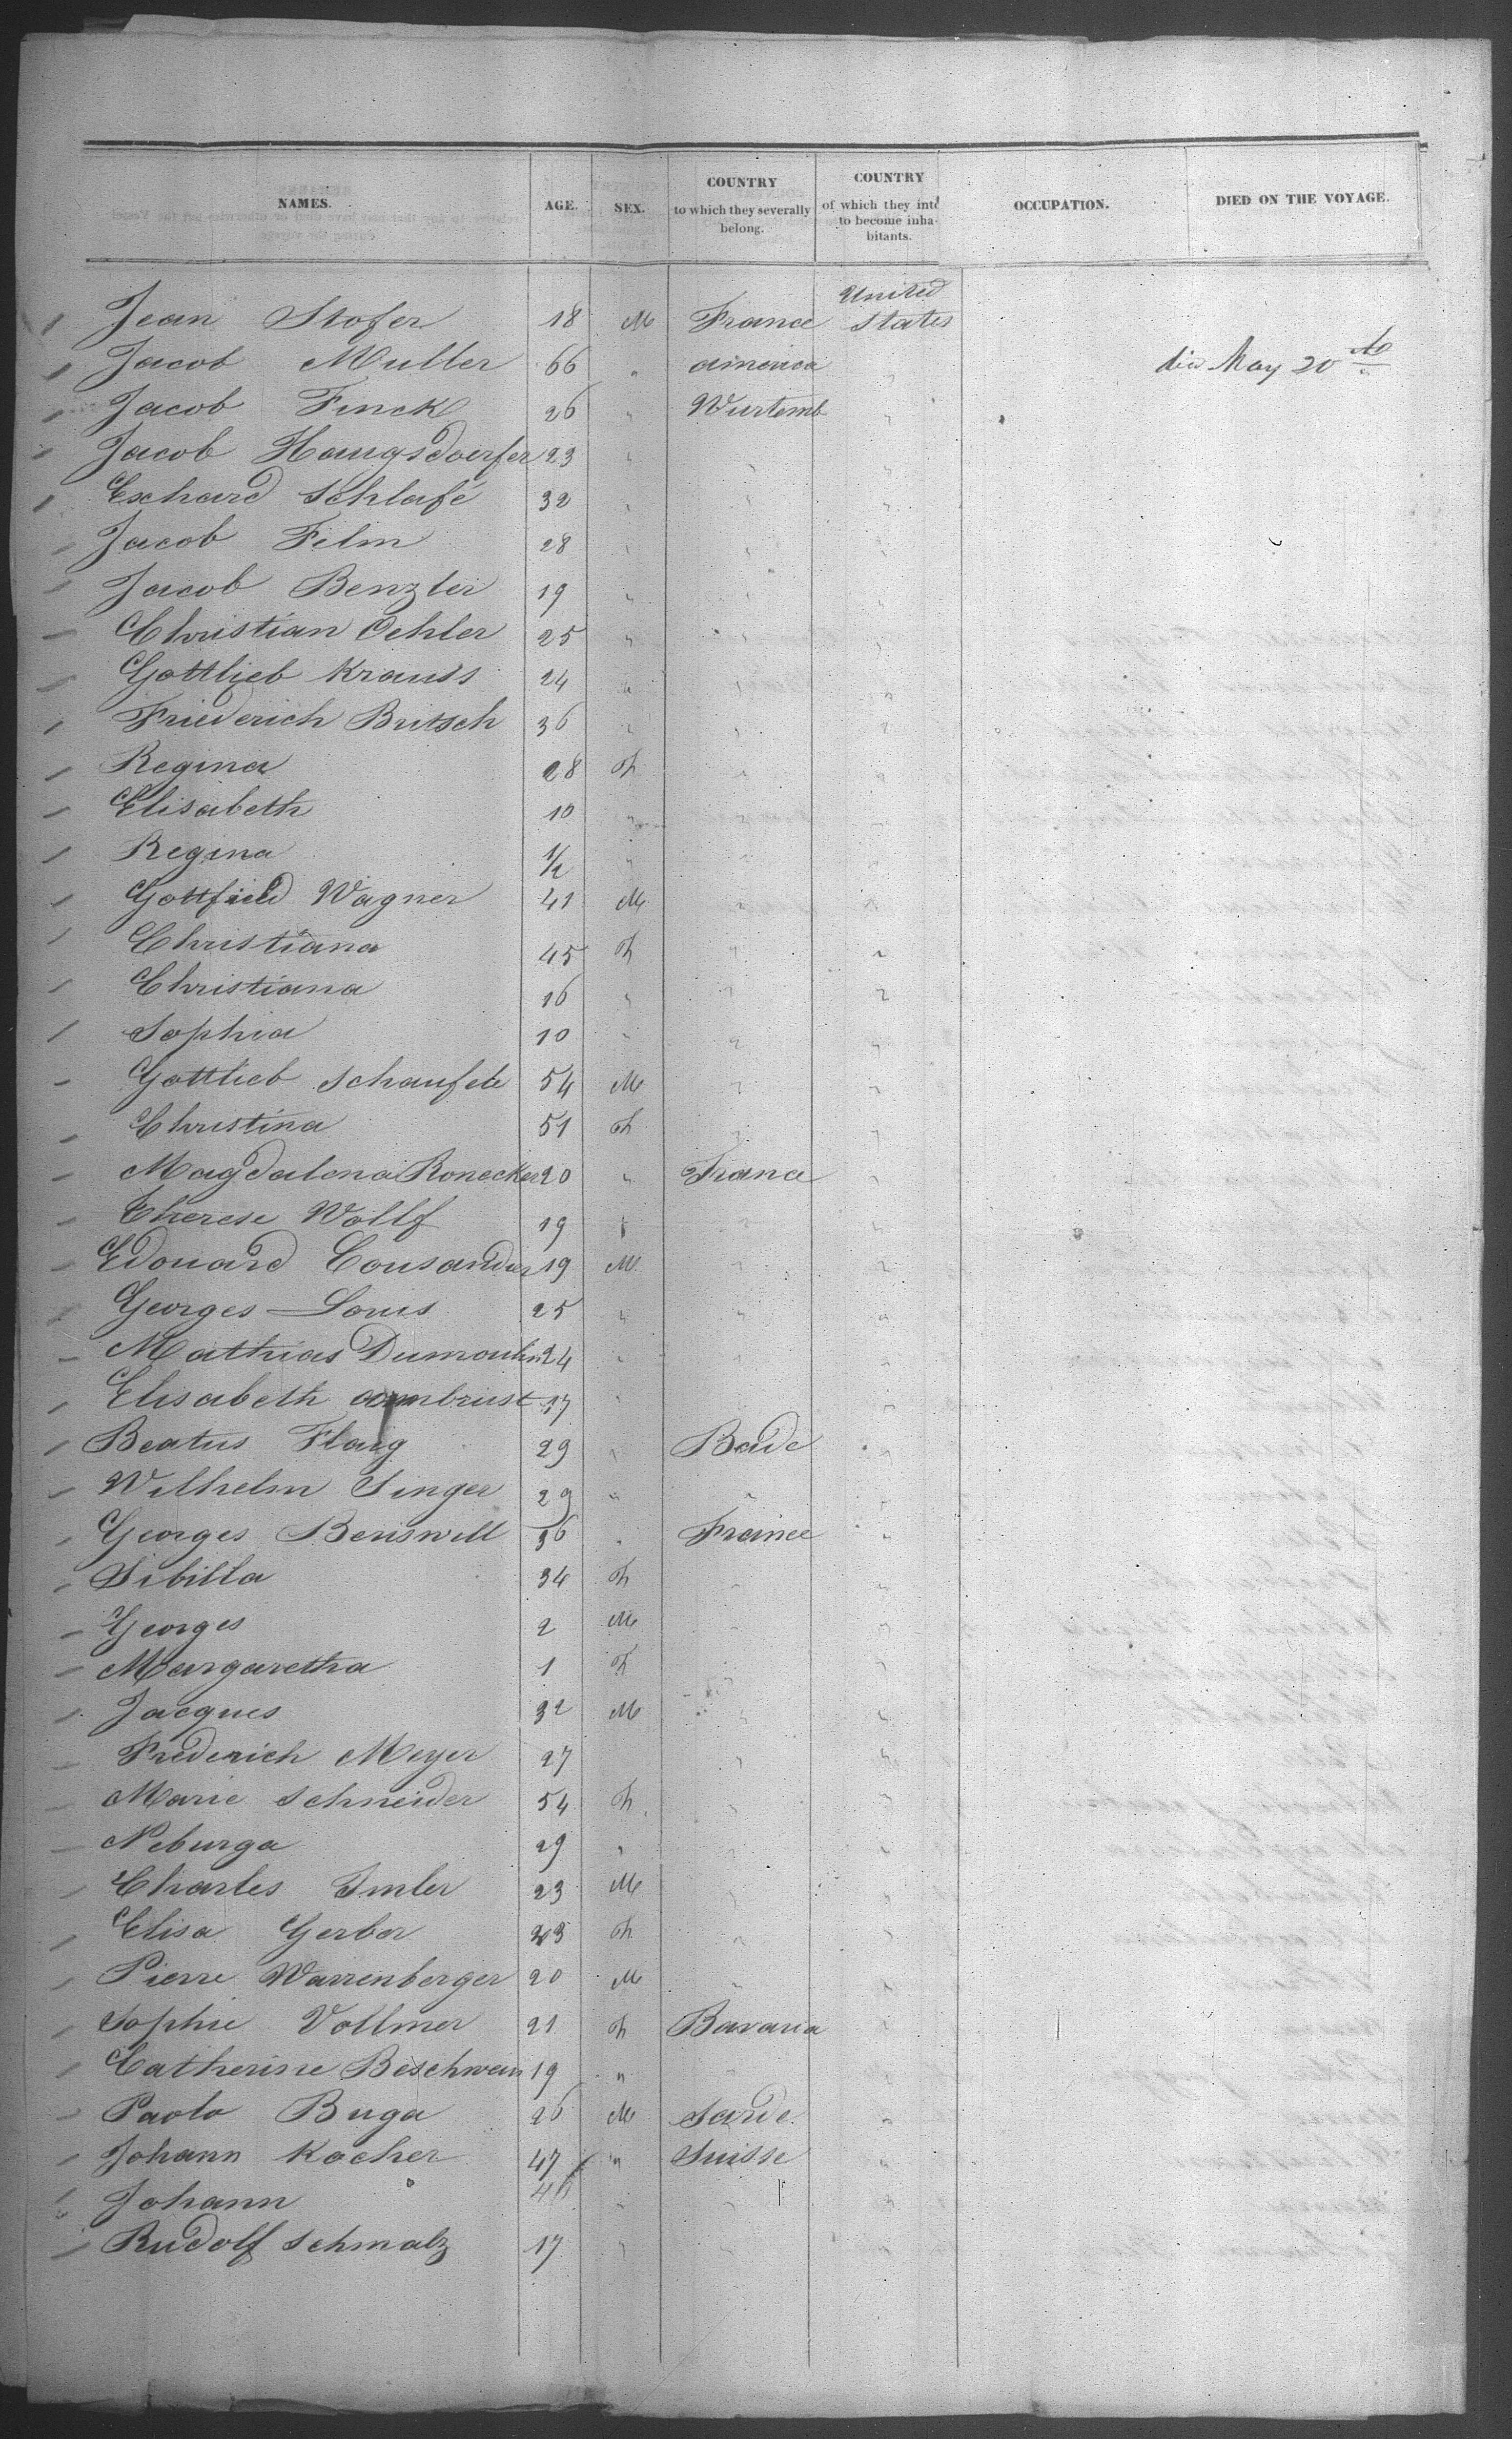 NAMES. AGE. SEX. COUNTRY to which they severally belong. COUNTRY of which they intd to become inhabitants. OCCUPATION. DIED ON THE VOYAGE.
Jean Stofer 18 M France United States
Jacob Muller 66 " america " die May 20 th
Jacob Finck 26 " Wurtemb "
Jacob Haugsdoerfer 23 " " "
Exhard Schlafé 32 " " "
Jacob Felm 28 " " "
Jacob Benzler 19 " " "
Christian Oehler 25 " " "
Gottlieb Krauss 24 " " "
Friederich Butsch 36 " " "
Regina 28 F " "
Elisabeth 10 " " "
Regina 1/2 " " "
Gottfried Wagner 41 M " "
Christiana 45 F " "
Christiana 16 " " "
Sophia 10 " " "
Gottlieb Schaufele 54 M " "
Christina 51 F " "
Magdalena Ronecker 20 " France "
Therese Wollf 19 " " "
Edouard Cousandier 19 M " "
Georges Louis 25 " " "
Mathias Dumoulin 24 " " "
Elisabeth armbrust 17 " " "
Beatus Flaig 29 " Bade "
Wilhelm Singer 29 " " "
Georges Beriswill 36 " France "
Sibilla 34 F " "
Georges 2 M " "
Margaretha 1 F " "
Jacques 32 M " "
Frederich Meyer 27 " "
Marie Schneider 54 F " "
Neburga 29 " " "
Charles Imler 23 M " "
Elisa Gerber 23 F " "
Pierre Warrenberger 20 M " "
Sophie Vollmer 21 F Bavaria "
Catherine Beschwein 19 " " "
Paolo Buga 26 M Sarde "
Johann Kocher 47 " Suisse "
Johann 46 " " "
Rudolf Schmalz 17 " " "